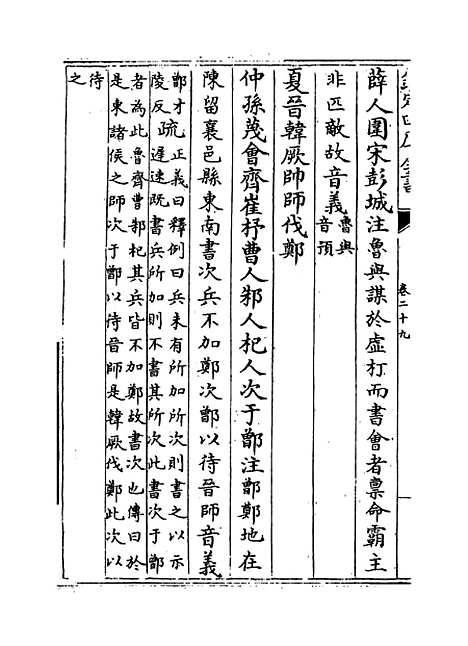 欽定四庫全書
卷二十九
薛人圍宋彭城注魯與謀於虛朾而書會者禀命霸主
非匹敵故音義魯與
音預
夏晉韓厥帥師伐鄭
仲孫蔑會齊崔杼曹人邾人杞人次于鄫注鄫鄭地在
陳留襄邑縣東南書次兵不加鄭次鄫以待晉師音義
鄫才
陵反
疏正義曰釋例曰兵未有所加所次則書之以示
遲速既書兵所加則不書其所次此書次于鄫
者為此魯齊曹邾杞其兵皆不加鄭故書次也傳曰於
是東諸侯之師次于鄫以待晉師是韓厥伐鄭此次以
待
之